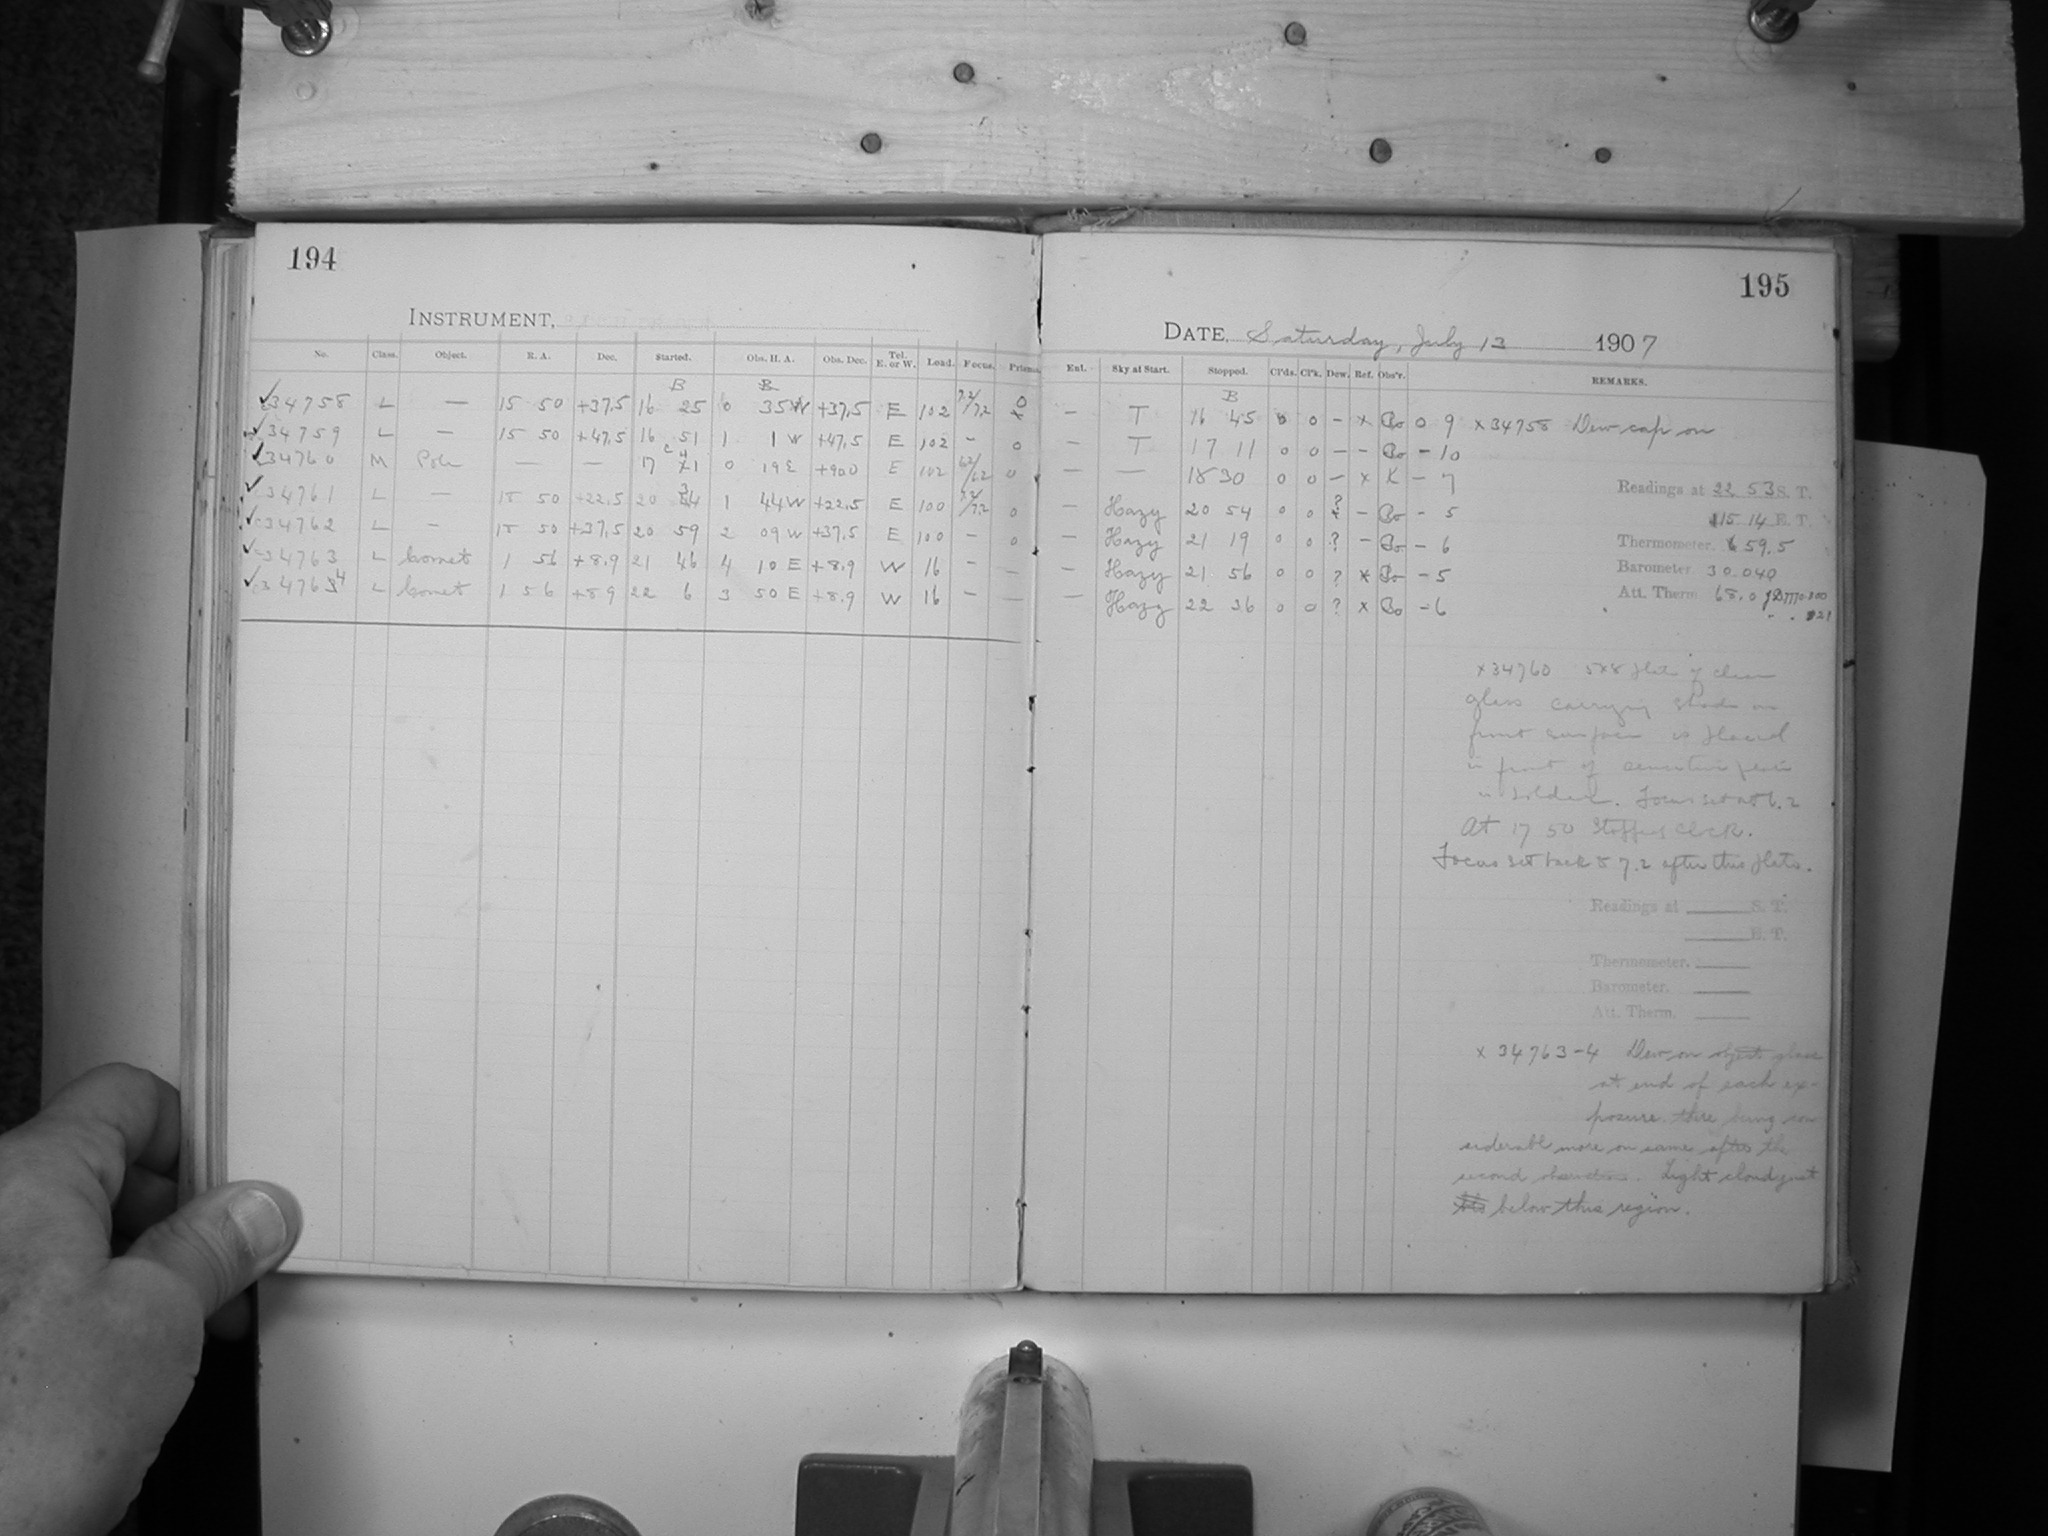 194
INSTRUMENT,
No. Class. Object. R. A. Dec. Started. Obs. H. A. Obs. Dec. Tel. E. or W. Load. Focus. Prisms.
B B
34758 L — 15 50 +37.5 16 25 0 35 W +37.5 E 102 7.2/7.2 0
34759 L — 15 50 +47.5 16 51 1 1 W +47.5 E 102 – 0
34760 M Pole — — 17 41 0 19 E +90.0 E 102 6.2/6.2 0
34761 L — 15 50 +22.5 20 34 1 44 W +22.5 E 100 7.2/7.2 0
34762 L – 15 50 +37.5 20 59 2 09 W +37.5 E 100 – 0
34763 L Comet 1 56 +8.9 21 46 4 10 E +8.9 W 16 – —
34764 L Comet 1 56 +8.9 22 6 3 50 E +8.9 W 16 – —
195
DATE, Saturday, July 13 1907
Ent. Sky at Start. Stopped. Cl'ds. Cl'k. Dew. Ref. Obs'r. REMARKS.
B
— T 16 45 0 0 – x Bo 0 9 x34758 Dew cap on
— T 17 11 0 0 – – Bo – 10
— — 18 30 0 0 – x K – 7
— Hazy 20 54 0 0 ? – Bo – 5
— Hazy 21 19 0 0 ? – Bo – 6
— Hazy 21 56 0 0 ? x Bo – 5
— Hazy 22 26 0 0 ? x Bo – 6
Readings at 22 53 S. T.
15 14 E. T.
Thermometer. 59.5
Barometer. 30.040
Att. Therm. 68.0
x34760 5x8 plate of clear
glass carrying shade on
front surface is placed
in front of sensitive plate
in holder. Focus set at 6.2
At 17 50 Stopped clock.
Focus set back to 7.2 after this plate.
Readings at S. T.
E. T.
Thermometer.
Barometer.
Att. Therm.
x 34763-4 Dew on object glass
at end of each ex-
posure there being con
siderabl more on same after the
second observation. Light clouds just
below this region.